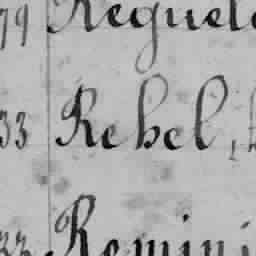 79 Reguel
33 Rebel,
33 Remini